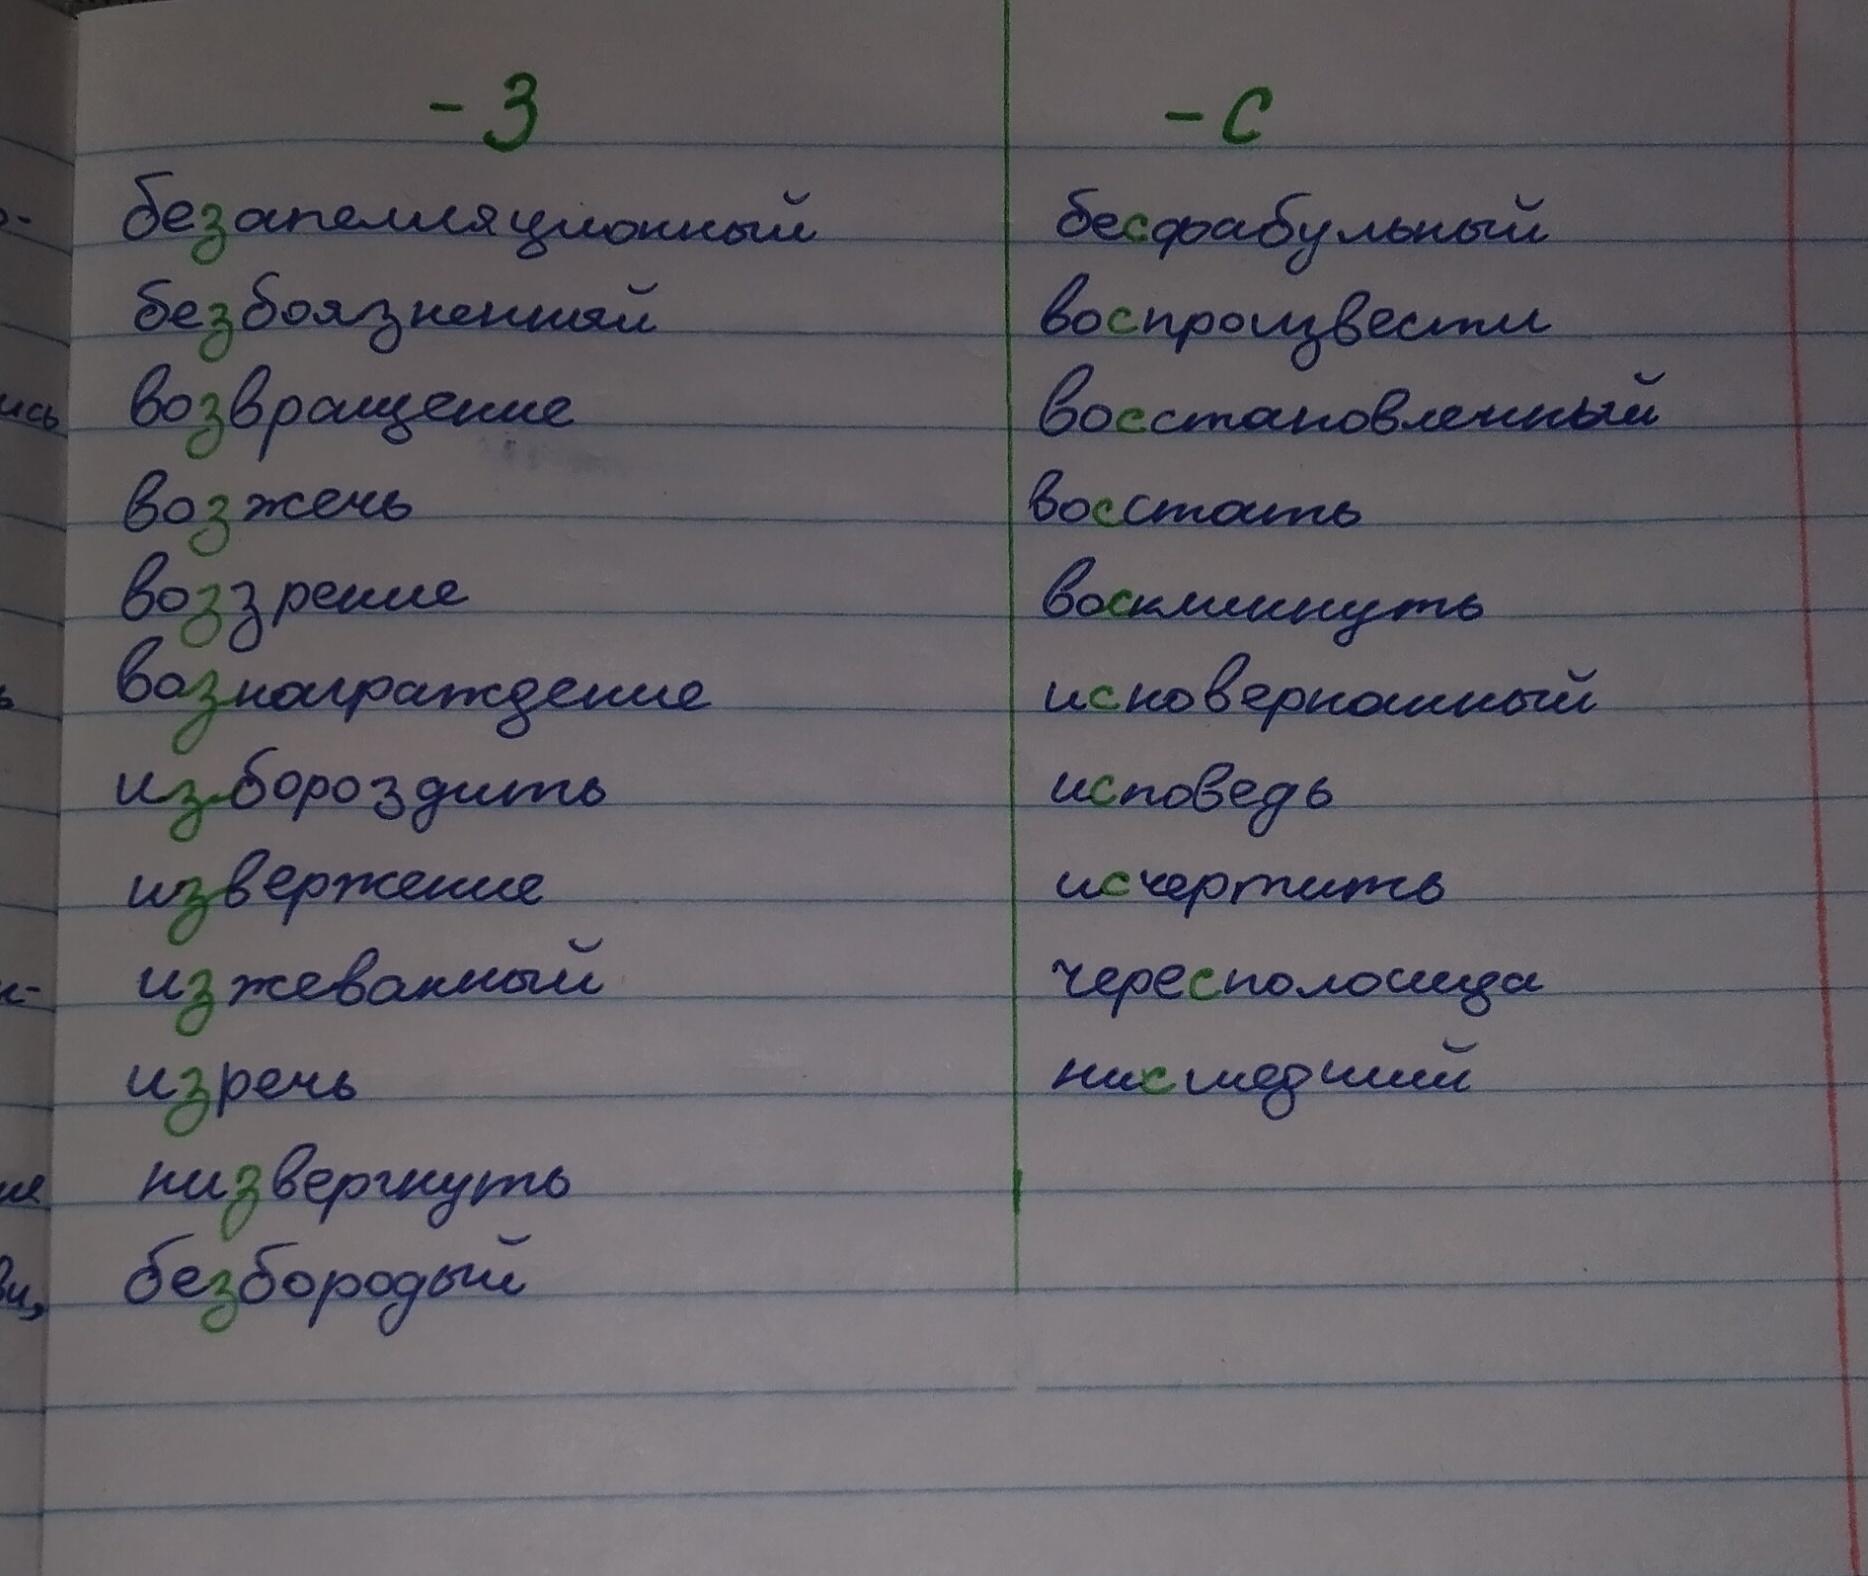 -З
безапелляционный
безбоязненный
возвращение
возжечь
воззрение
вознаграждение
избороздить
извержение
изжеванный
изречь
низвергнуть
безбородый
-С
бесфабульный
воспроизвести
восстановленный
восстать
воскликнуть
исковерканный
исповедь
исчертить
чересполосица
нисшедший